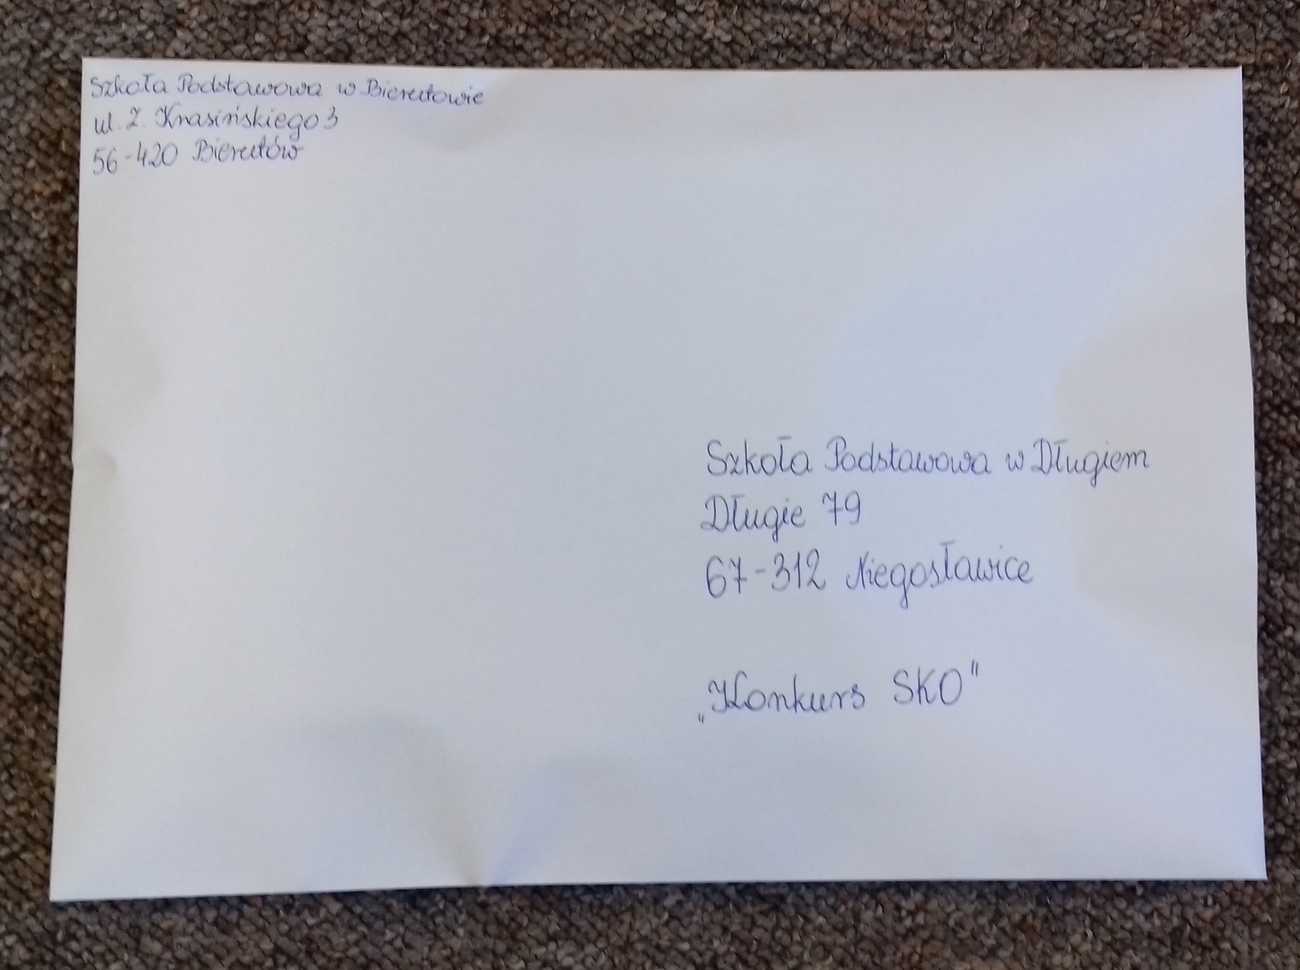 Szkoła Podstawowa w Bierutowie
ul. Z. Krasińskiego 3
56-420 Bierutów
Szkoła Podstawowa w Długiem
Długie 79
67-312 Niegosławice
„Konkurs SKO"